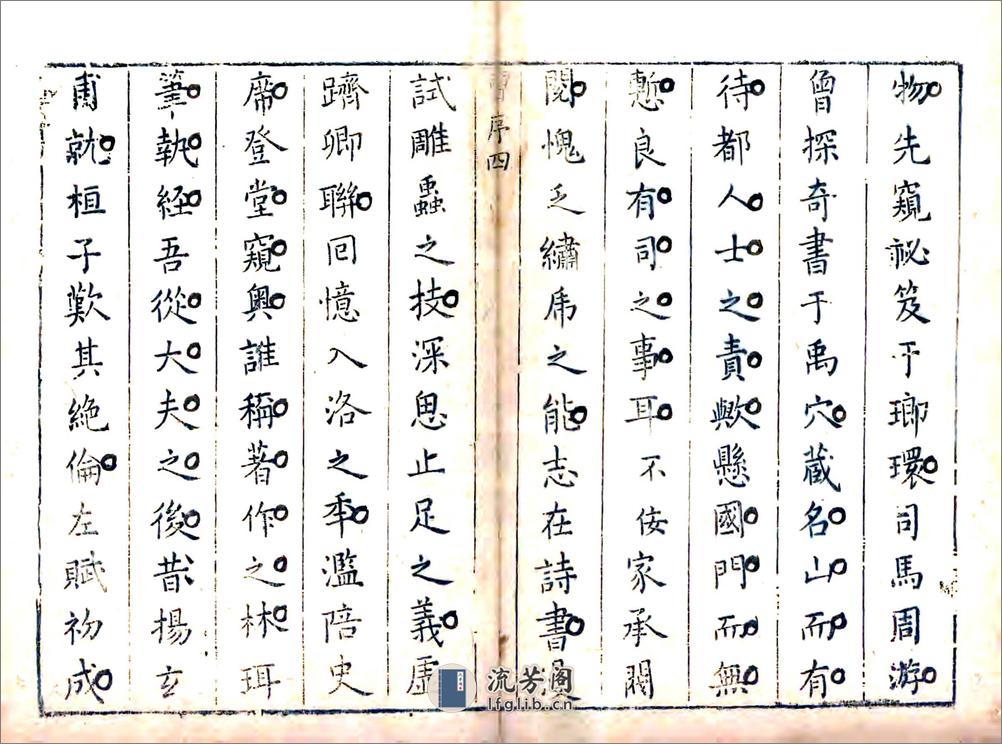 物先窺祕笈于瑯環司馬周游
曾探奇書于禹穴藏名山而有
待都人士之責歟懸國門而無
慙良有司之事耳不佞家承閥
閱愧乏繡虎之能志在詩書
序四
試雕蟲之技深思止足之義虛
躋卿聯回憶入洛之秊濫陪史
席登堂窺奧誰稱著作之林珥
筆執經吾從大夫之後昔揚玄
甫就桓子歎其絶倫左賦初成
流芳阁
lfglib.cn